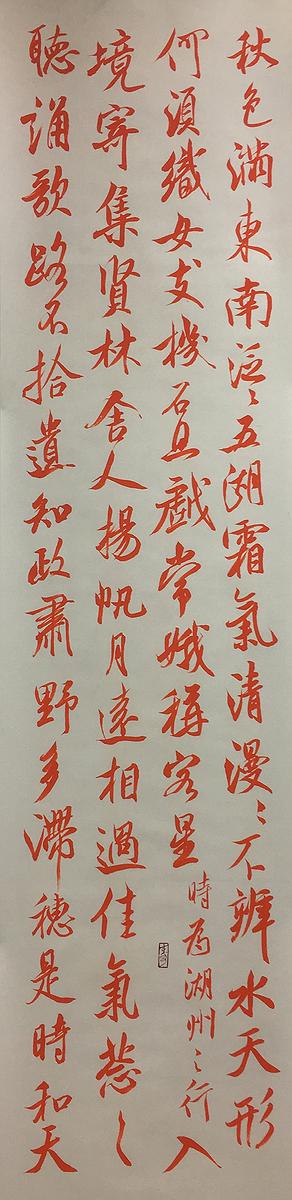 秋色滿東南泛〻五湖霜氣清漫〻不辨水天形
何須織女支機石且戲常娥稱客星時為湖州之行入
境寄集賢林舍人揚帆月遠相過佳氣蔥〻
聽誦歌路不拾遺知政肅野多滯穗是時和天